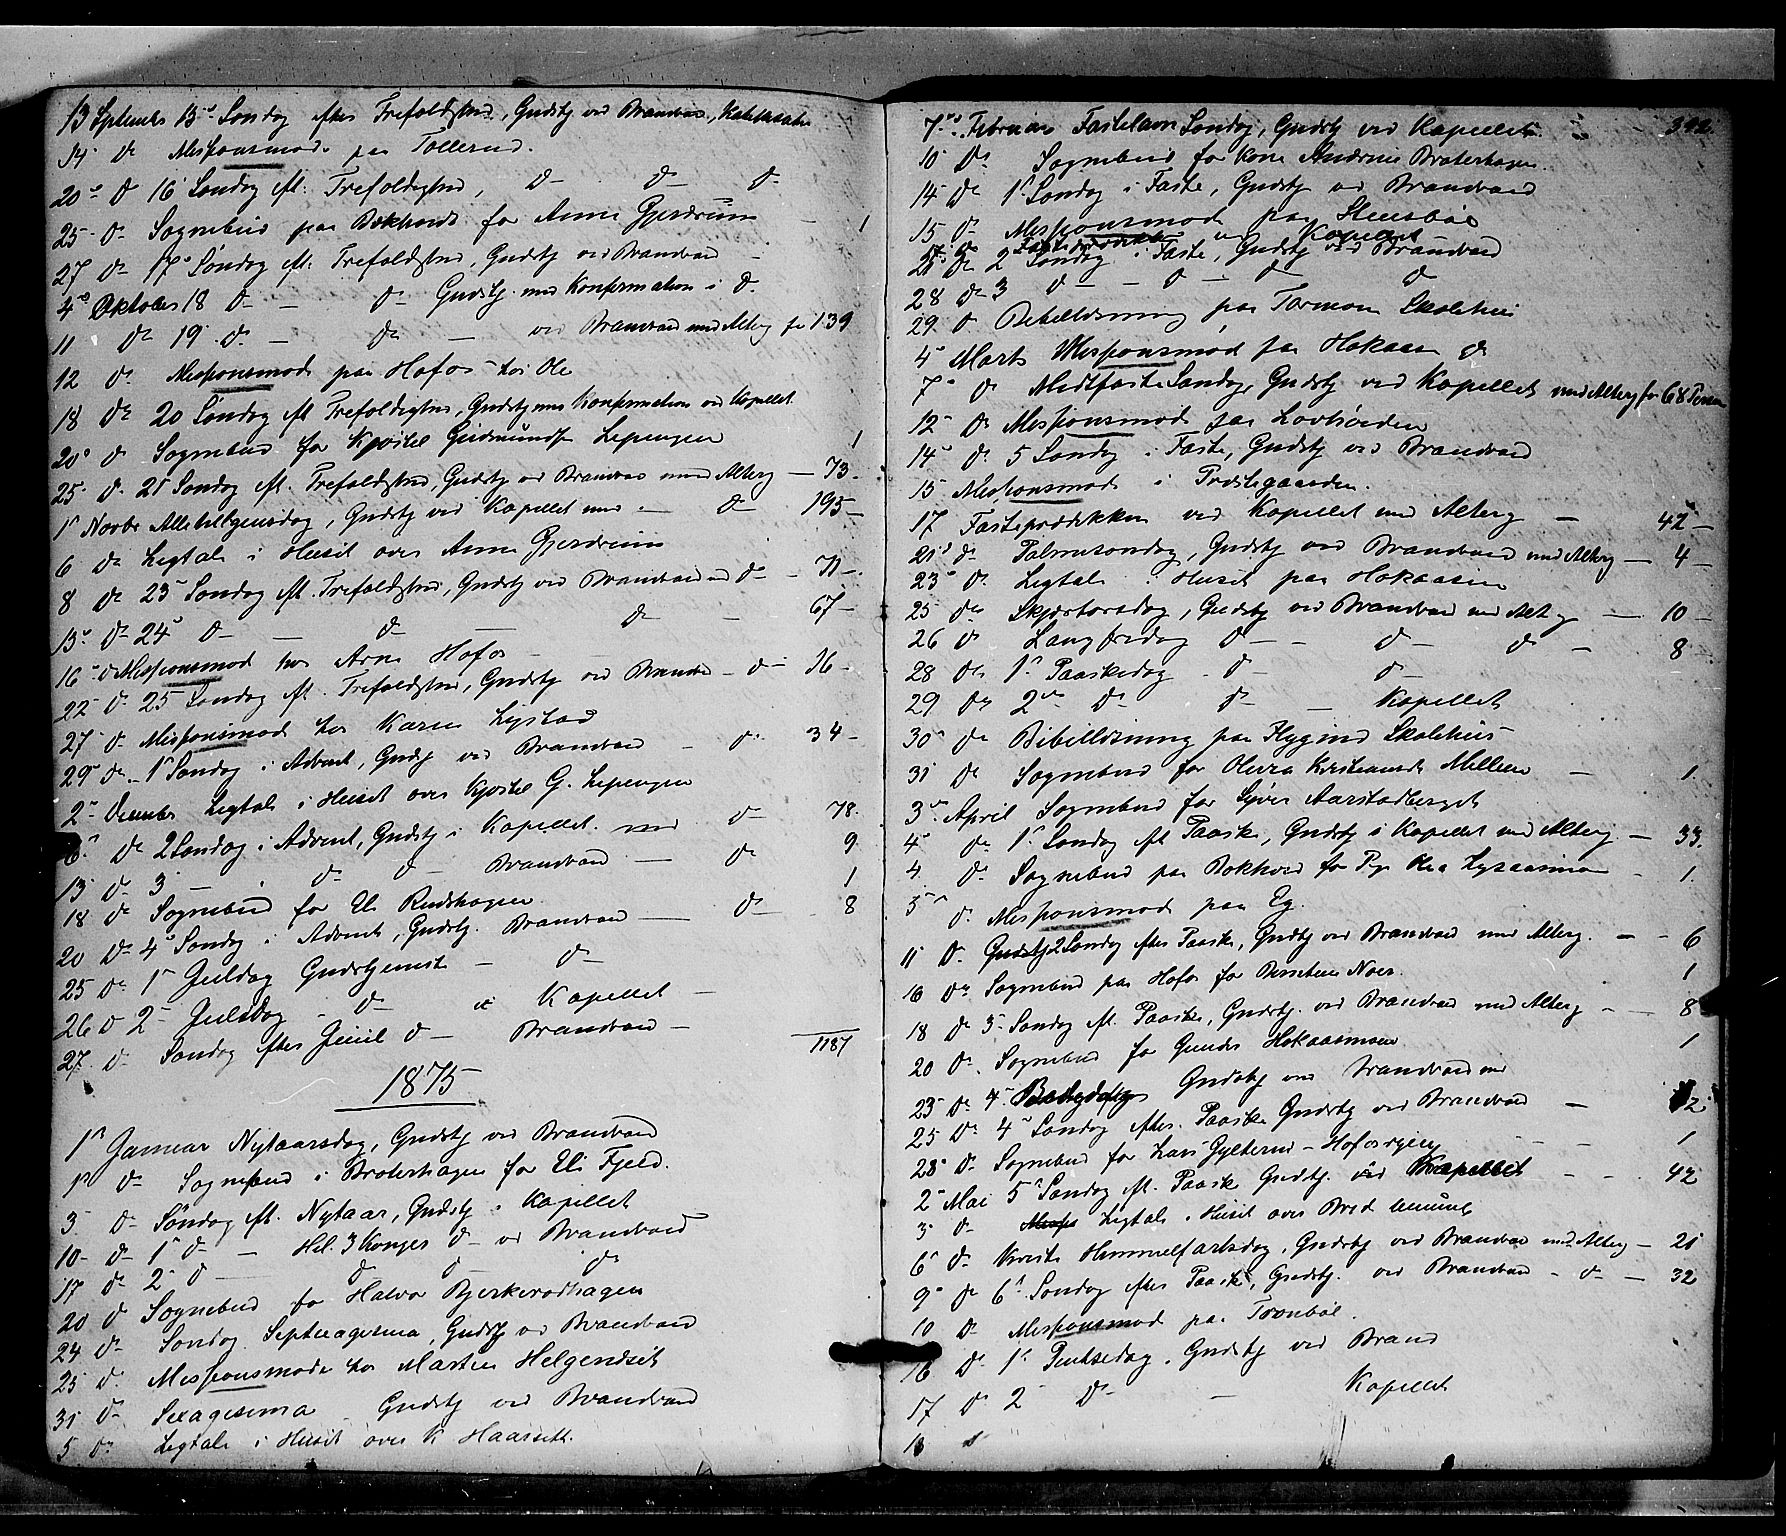 13 September 15de Søndag efter Trefoldighed, Gudstj ved Brandvoed, Katekisation
14 do Missionsmøde paa Tollerud.
20de do 16 Søndag eft. Trefoldighed, do do do
25 do Sognebud paa Bokhord for Anne Gjerdrum — 1
27 do 17de Søndag eft. Trefoldighed, Gudstj ved Brandvoed —
4de Oktober 18 do — do Gudstj. med Konfirmation i do.
11 do 19 do. — do — ved Brandvoed med Alterg for 139
12 do. Missionsmøde paa Hofos hos Ole
18 do 20 Søndag eft Trefoldighed, Gudstj med Konfirmation ved Kapellet
20de do Sognebud for Kjøstel Gudmunds Lepengen 1
25 do. 21 Søndag eft. Trefoldighed, Gudstj ved Brandvoed med Alterg — 73.
1ste Novbr Allehelgensdag, Gudstj ved Kapellet med — do 195 —
6 do Ligtale i Huset over Anne Gjerdrum
8 do 23de Søndag eft. Trefoldighed, Gudstj ved Brandvoed med do — 71 —.
15de do 24de do — do — do — 67 —
16 do Missionsmøde hos Arne Hofos
22 do 25 Søndag eft. Trefoldighed, Gudstj ved Brandvoed — do — 36 —
27 do Missionsmøde hos Karen Lystad
29 do 1ste Søndag i Advent, Gudstj ved Brandvoed — do 34 —
2den December Ligtale i Huset over Kjøstel G. Lepengen
6te do 2 Søndag i Advent, Gudstj i Kapellet med do 78.
13 do 3 — do do Brandvoed — do 9
18 do Sognebud for Eli Rudshagen 1
20 do 4de Søndag i Advent, Gudstj. Brandvoed — do — 8
25 do 1ste Juledag Gudstjeneste — do —
26 do 2den Juledag — do — i Kapellet —
27 do Søndag efter Juul do — Brandvoed —
1187
1875
1ste Januar Nytaarsdag, Gudstj ved Brandvoed
1ste do Sognebud i Braterhagen for Eli Fjeld.
3 do Søndag eft. Nytaar, Gudstj i Kapellet
10 — do — 1ste do — Hel. 3 Konger do — ved Brandvoed
17 do 2 do — do do — do
20 do Sognebud for Halvor Bjerkerodhagen
24 do Søndag Septuagesima, Gudstj ved Brandvoed
25 do. Missionsmøde hos Martin Helgeneset
31 do Sexagesima Gudstj ved Brandvoed
5 do Ligtale i Huset over K Haarsett.
392.
7de Februar Fastelavns Søndag, Gudstj ved Kapellet
10 do Sognebud for Kone Andrine Braterhagen.
14 do 1ste Søndag i Faste, Gudstj ved Brandvoed
15 do Missionsmøde paa Steensbøl
17 do Fasteprædiken ved Kapellet
21 do 2 Søndag i Faste, Gudstj ved Brandvoed
28 do 3 do — do — do do
29 do Bibellæsning paa Tormoen Skolehus
4de Marts Missionsmøde paa Hokaasen do
7de do Midfaste Søndag, Gudstj ved Kapellet med Alterg for 68 Personer
12 do Missionsmøde paa Lovhoeden
14de do 5 Søndag i Faste, Gudstj ved Brandvoed
15 Missionsmøde i Præstegaarden.
17 Fasteprædiken ved Kapellet med Alterg — 42 —
21de do Palmesøndag, Gudstj ved Brandvoed med Alterg — 4 —
23de do. Ligtale i Huset paa Hokaasen
25 do Skjærtorsdag, Gudstj ved Brandvoed med Alterg — 10 —
26 do Langfredag do — do — do — 8
28 do 1ste Paaskedag do — do —
29 do 2den do do — Kapellet
30 do Bibellæsning paa Flygind Skolehus
31 do Sognebud for Olava Kristiansdt Millien — 1.
3de April Sognebud for Syver Aarstadberget
4de do 1ste Søndag eft Paaske, Gudstj i Kapellet med Alterg — 33.
4 do Sognebud paa Bokhord for Pige Kia Lysaasmoen — 1.
5te do. Missionsmøde paa Eg.
11 do Gudstj 2 Søndag efter Paaske, Gudstj ved Brandvoed med Alterg. — 6
16 do Sognebud paa Hofos for Noer. 1
18 do 3de Søndag eft. Paaske, Gudstj. ved Brandvoed med Alterg — 8
20 do Sognebud for Gunder Hokaasmoen 1
23 do 4de Bededag Gudstj ved Brandvoed med
25 do 4de Søndag efter Paaske Gudstj ved Brandvoed — 2
28 do Sognebud for Lars Gylterud — Hofosrygen 1
2den Mai 5te Søndag eft. Paaske Gudstj. ved Kapellet — 42
3 do Misse Ligtale i Huset over
6te do Kristi Himmelfartsdag, Gudstj ved Brandvoed med Alterg — 21
9de do 6te Søndag efter Paaske, Gudstj. ved Brandvoed — do — 32
10 do Missionsmøde paa Tronbøl.
16 do 1ste Pintsedag, Gudstj ved Brand
17 do 2 do — Kapellet
18